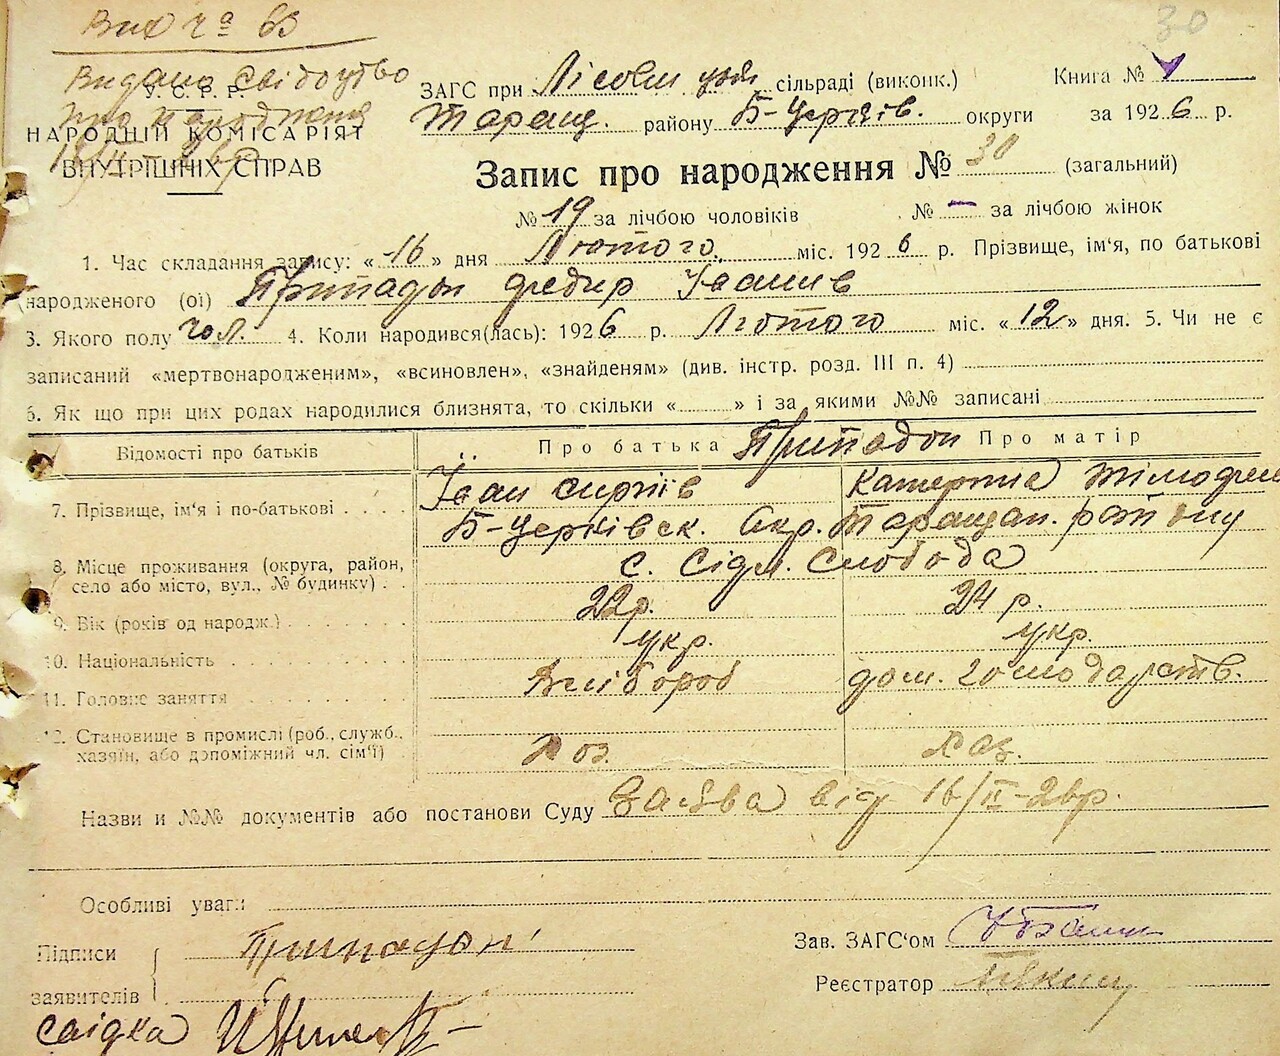 30
Вих ч⁰ 63
Видано свідоцтво
про народження
У.С.Р.Р.
НАРОДНІЙ КОМІСАРІЯТ
ВНУТРІШНІХ СПРАВ
ЗАГС при Лісови сільраді (виконк.) Книга №
Таращ. району Б-Церків. округи за 1926 р.
Запис про народження № 30 (загальний)
№ 19 за лічбою чоловіків № — за лічбою жінок
1. Час складання запису: «16» дня Лютого міс. 1926 р. Прізвище, ім'я, по батькові
(народженого (ої) Припадон Федир Іванів
3. Якого полу чол. 4. Коли народився(лась): 1926 р. Лютого міс. «12» дня. 5. Чи не є
записаний «мертвонародженим», «всиновлен», «знайденям» (див. інстр. розд. III п. 4)
6. Як що при цих родах народилися близнята, то скільки « » і за якими №№ записані
Відомості про батьків Про батька Припадон Про матір
7. Прізвище, ім'я і по-батькові Іван Сиргіїв Катерина
8. Місце проживання (округа, район, село або місто, вул., № будинку) Б-Церківск. Окр. Таращан. району
с. Сідл. Слобода
9. Вік (років од народж.) 22р. 24 р.
10. Національність укр. укр.
11. Головне заняття Хлібороб дом. господарств.
12. Становище в промислі (роб., служб., хазяїн, або допоміжний чл. сім'ї) хоз. хаз.
Назви и №№ документів або постанови Суду Заява від 16/II-26р.
Особливі уваги
Підписи заявителів Припадон
Зав. ЗАГС'ом
Реєстратор
свідка